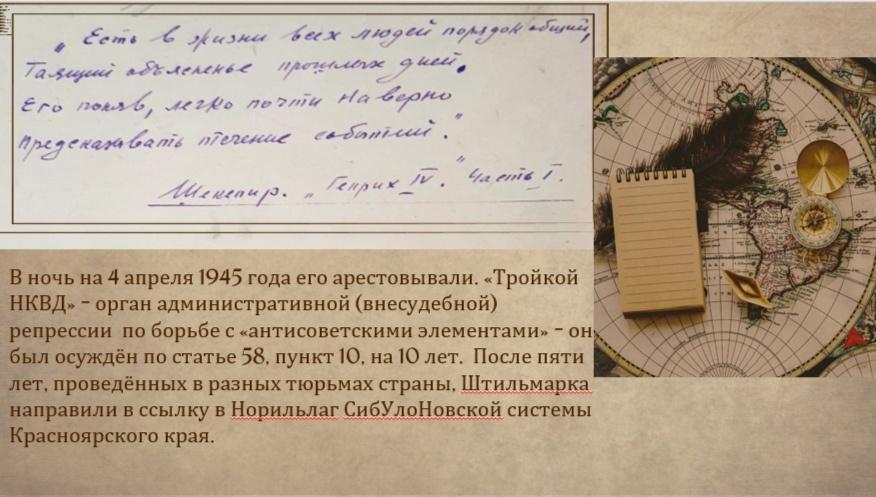 „Есть в жизни всех людей порядок общий,
Таящий объясненье прошлых дней.
Его поняв, легко почти наверно
Предсказывать течение событий."
Шекспир. „Генрих IV." Часть I.
В ночь на 4 апреля 1945 года его арестовывали. «Тройкой
НКВД» – орган административной (внесудебной)
репрессии по борьбе с «антисоветскими элементами» – он
был осуждён по статье 58, пункт 10, на 10 лет. После пяти
лет, проведённых в разных тюрьмах страны, Штильмарка
направили в ссылку в Норильлаг СибУлоНовской системы
Красноярского края.